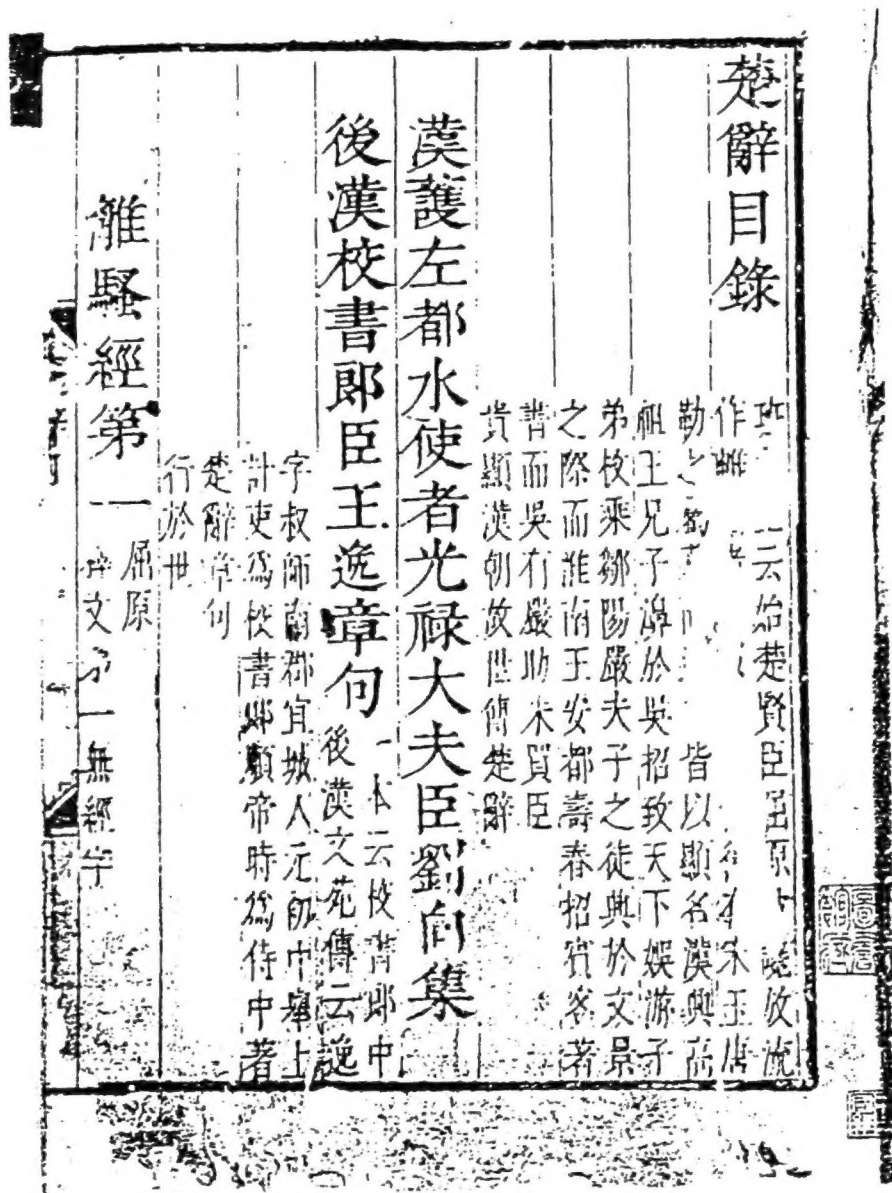 楚辭目錄
班 云始楚賢臣屈原 放流
作離 後有宋玉唐
勒之 皆以顯名漢興高
祖王兄子濞於吳招致天下娛游子
弟枚乘鄒陽嚴夫子之徒興於文景
之際而淮南王安都壽春招賓客著
書而吳有嚴助朱買臣
貴顯漢朝故世傳楚辭
漢護左都水使者光祿大夫臣劉向集
後漢校書郎臣王逸章句
一本云校書郎中
後漢文苑傳云逸
字叔師南郡宜城人元初中舉上
計吏為校書郎順帝時為侍中著
楚辭章句
行於世
離騷經第一
屈原
釋文第一無經字